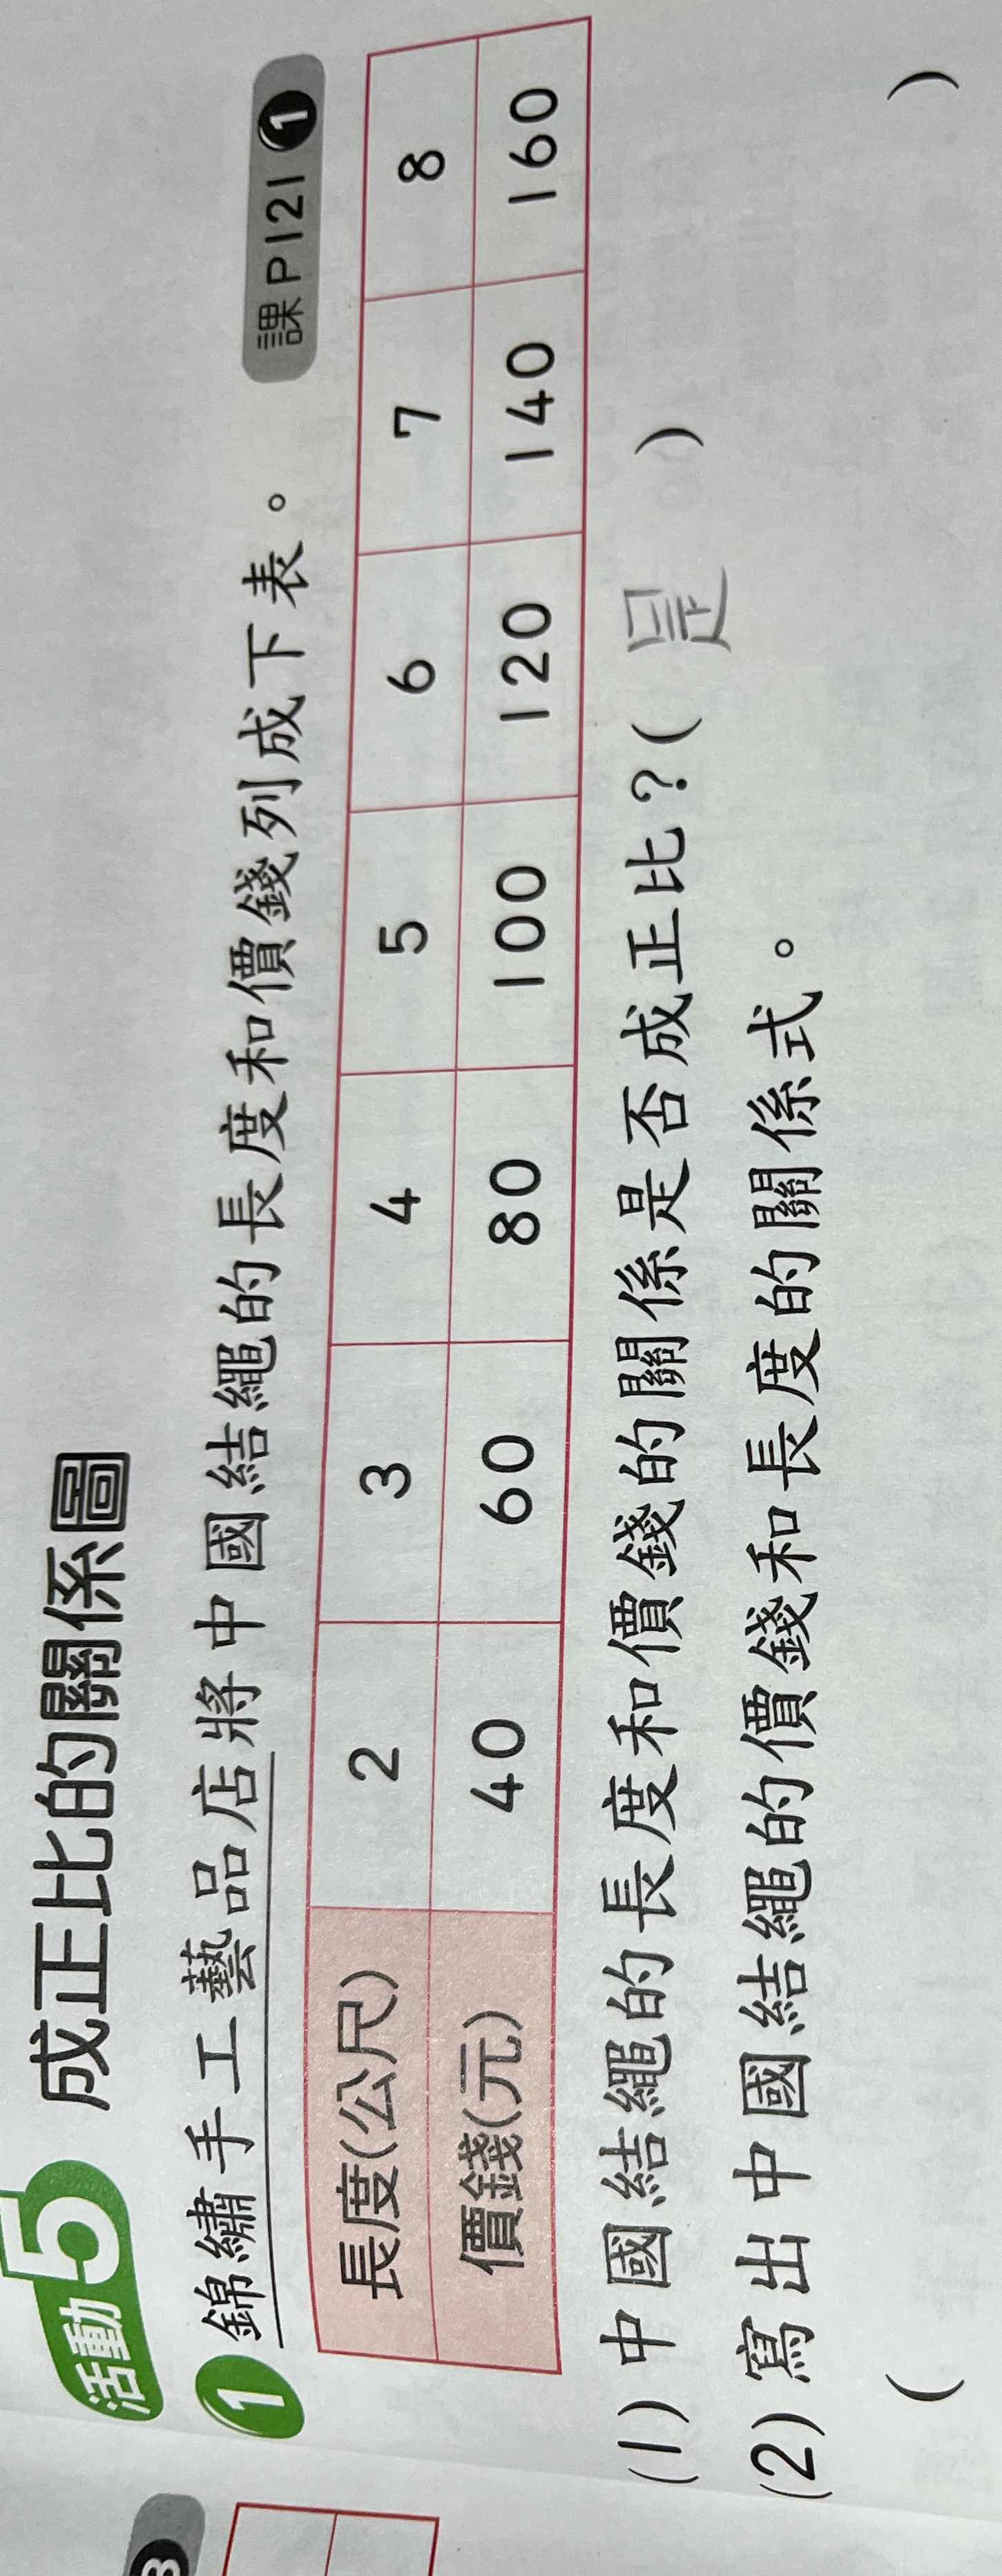 活動5 成正比的關係圖
1 錦繡手工藝品店將中國結繩的長度和價錢列成下表。 課P121 1
長度(公尺) 2 3 4 5 6 7 8
價錢(元) 40 60 80 100 120 140 160
(1) 中國結繩的長度和價錢的關係是否成正比?( 是 )
(2) 寫出中國結繩的價錢和長度的關係式。
( )
3